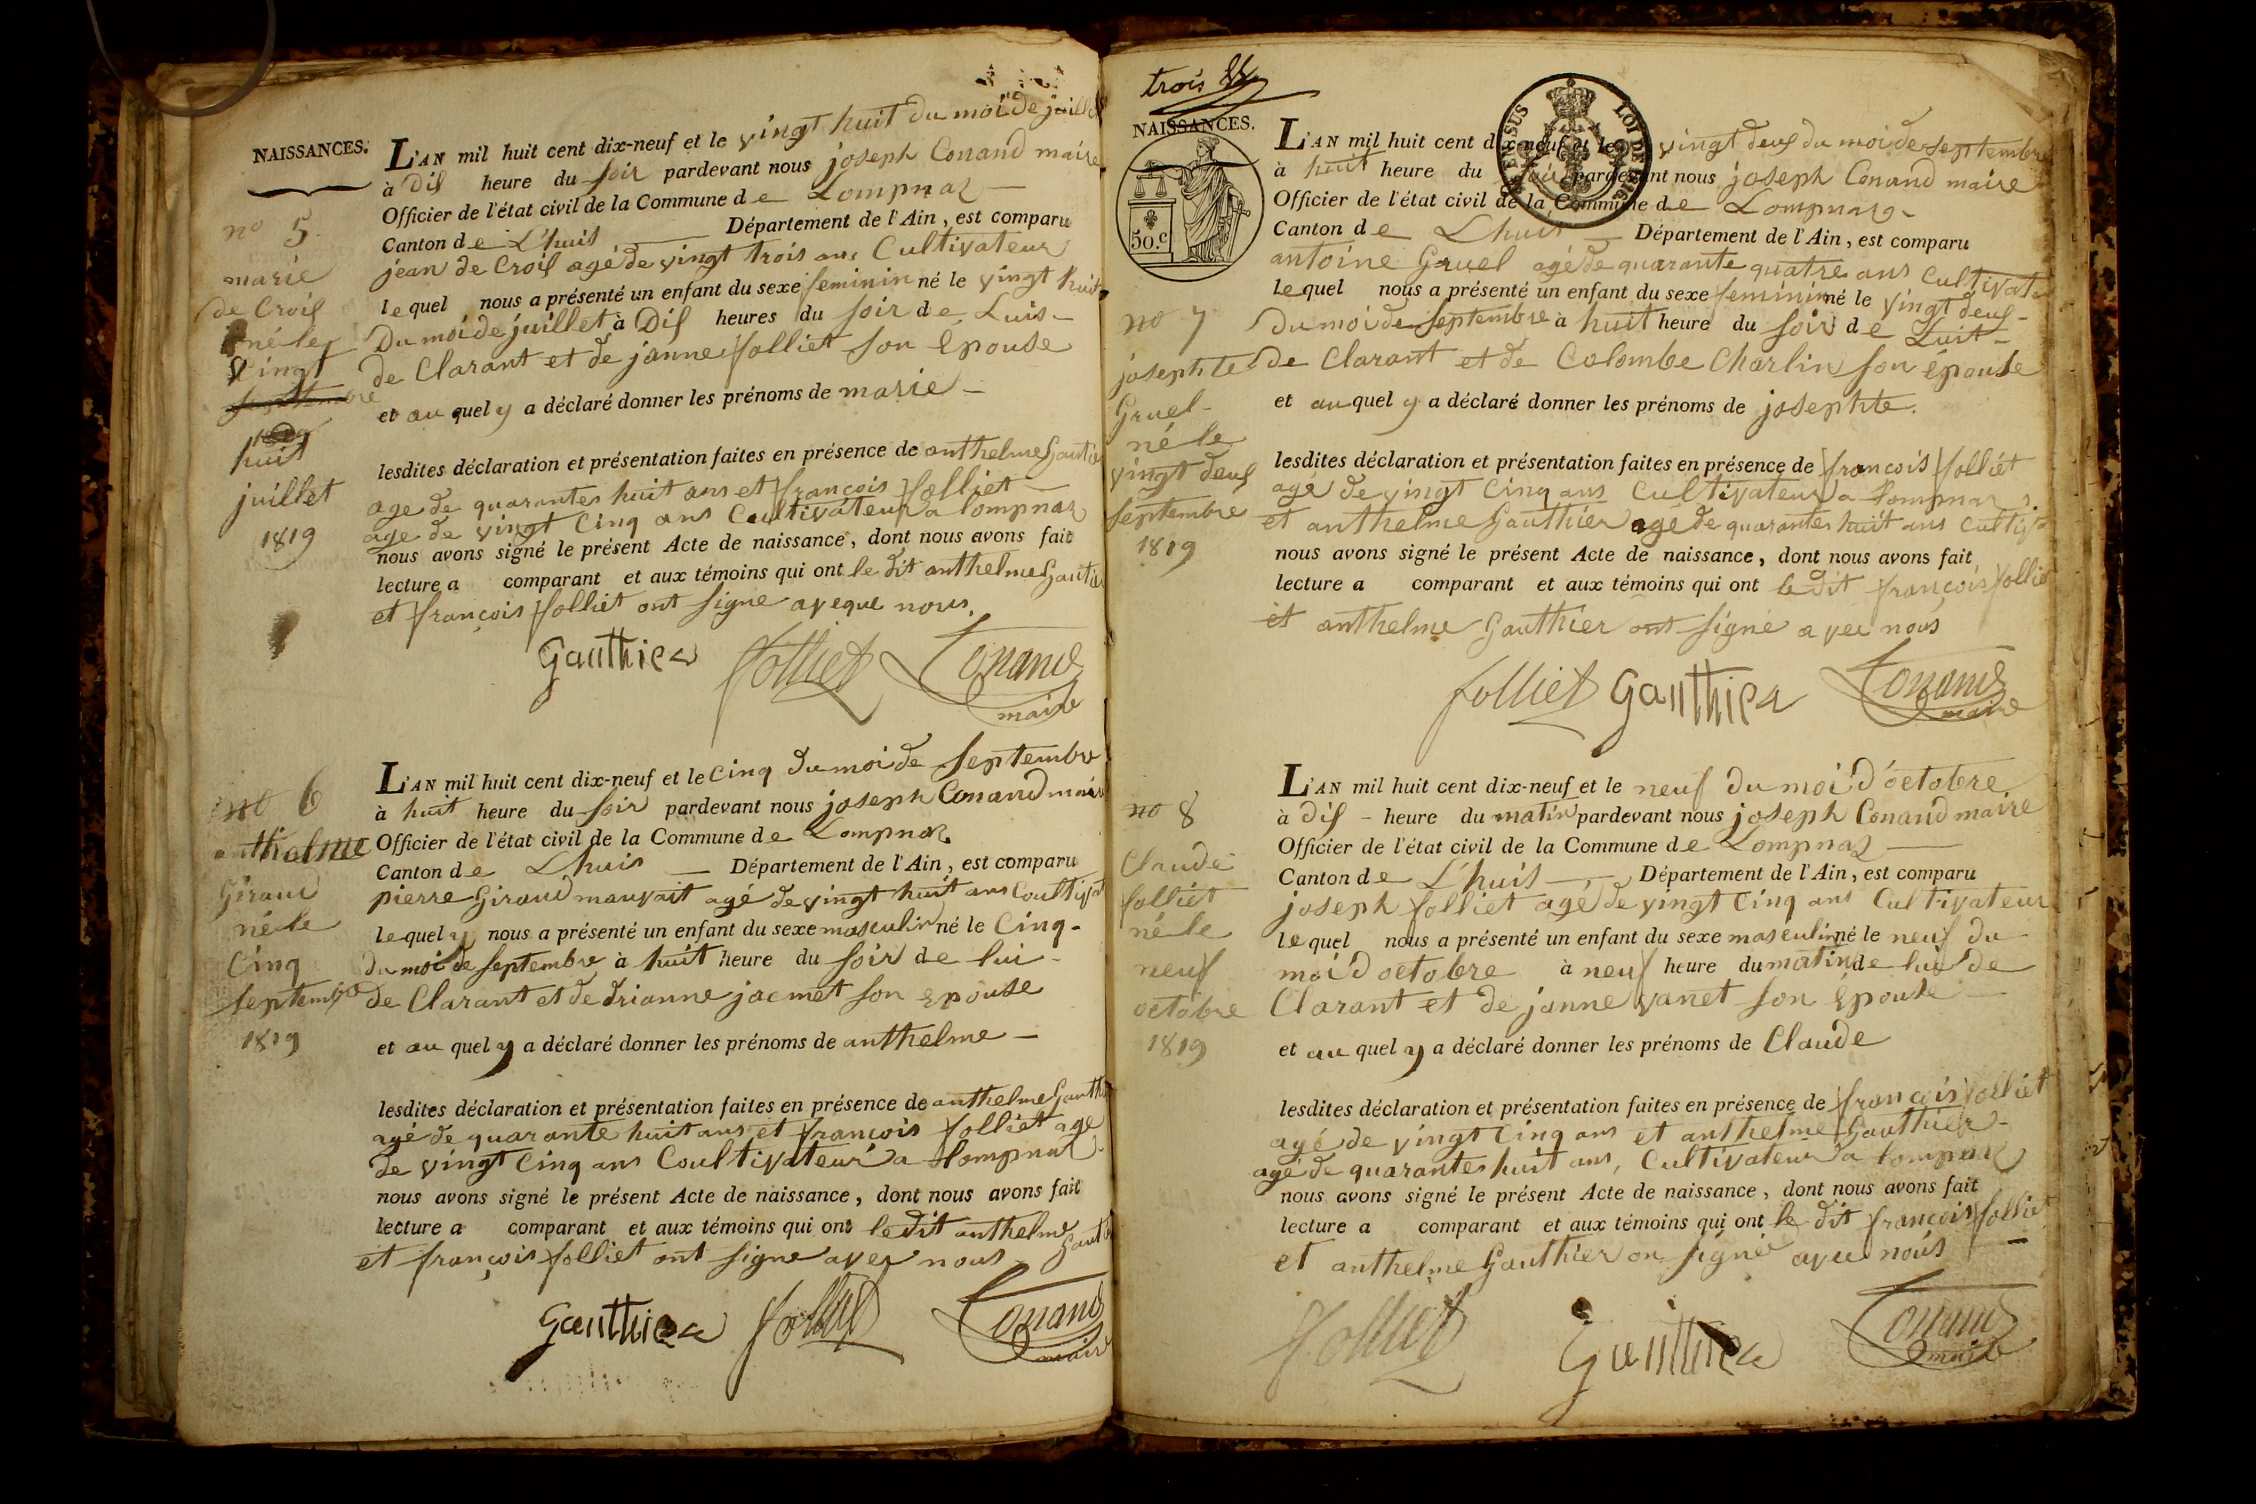 NAISSANCES.
L'AN mil huit cent dix-neuf et le vingt huit du moi de juillet
à Dis heure du soir pardevant nous joseph Conand maire
Officier de l'état civil de la Commune de Lompnaz
Canton de L'huis Département de l'Ain, est comparu
jean de Crois agé de vingt trois ans Cultivateur
lequel nous a présenté un enfant du sexe feminin né le vingt huit
Du moi de juillet à Dis heures du soir de Luis-
de Clarant et de janne folliet son Epouse
et au quel y a déclaré donner les prénoms de marie -
lesdites déclaration et présentation faites en présence de anthelme Gautie
age de quarantes huit ans et françois folliet
age de vingt Cinq ans Cultivateur a lompnaz
nous avons signé le présent Acte de naissance, dont nous avons fait
lecture a comparant et aux témoins qui ont le dit anthelme Gautie
et françois folliet ont signe aveque nous.
Gauthier folliet Conand
maire
no 5.
marie
de Crois
né le
vingt
septembre
huit
juillet
1819
L'AN mil huit cent dix-neuf et le Cinq du moi de Septembre
à huit heure du soir pardevant nous joseph Conand maire
Officier de l'état civil de la Commune de Lompnaz
Canton de Lhuis Département de l'Ain, est comparu
pierre Giraud mauvait agé de vingt huit ans Coultivat
lequel y nous a présenté un enfant du sexe masculin né le Cinq-
du moi de septembre à huit heure du soir de lui-
de Clarant et de drianne jacmet son Epouse
et au quel y a déclaré donner les prénoms de anthelme -
lesdites déclaration et présentation faites en présence de anthelme Gauth
agé de quarante huit ans et françois folliet age
de vingt Cinq ans Coultivateur a lompnaz
nous avons signé le présent Acte de naissance, dont nous avons fait
lecture a comparant et aux témoins qui ont ledit anthelme Gauti
et françois folliet ont signe avec nous
Gauthier folliet Conand
maire
no 6
anthelme
Giraud
né le
Cinq
septembre
1819
trois
NAISSANCES.
50.c
LOI DE 1816
L'AN mil huit cent dix-neuf et le vingt deus du moi de septembre
à huit heure du soir pardevant nous joseph Conand maire
Officier de l'état civil de la Commune de Lompnaz-
Canton de Lhuis Département de l'Ain, est comparu
antoine Gruel agé de quarante quatre ans Cultivate
lequel nous a présenté un enfant du sexe feminin né le vingt deus-
Du moi de septembre à huit heure du soir de Luit-
de Clarant et de Colombe Charlin son épouse
et au quel y a déclaré donner les prénoms de josephte.
lesdites déclaration et présentation faites en présence de françois folliet
agé de vingt Cinq ans Cultivateur a lompnaz
et anthelme Gauthier agé de quarantes huit ans Cultiv
nous avons signé le présent Acte de naissance, dont nous avons fait
lecture a comparant et aux témoins qui ont le dit françois folliet
et anthelme Gauthier ont signé avec nous
folliet Gauthier Conand
maire
no 7
josephte
Gruel-
né le
vingt deus
septembre
1819
L'AN mil huit cent dix-neuf et le neuf du moi d'octobre
à dis - heure du matin pardevant nous joseph Conand maire
Officier de l'état civil de la Commune de Lompnaz
Canton de L'huis Département de l'Ain, est comparu
joseph folliet agé de vingt Cinq ans Cultivateur
lequel nous a présenté un enfant du sexe masculin né le neuf du
moi d octobre à neuf heure du matin de lui de
Clarant et de janne vanet son Epouse
et au quel y a déclaré donner les prénoms de Claude
lesdites déclaration et présentation faites en présence de françois folliet
agé de vingt Cinq ans et anthelme Gauthier-
agé de quarantes huit ans, Cultivateur a lompnaz
nous avons signé le présent Acte de naissance, dont nous avons fait
lecture a comparant et aux témoins qui ont le dit françois folliet
et anthelme Gauthier on signé avec nous
folliet Gauthier Conand
maire
no 8
Claude
folliet
né le
neuf
octobre
1819